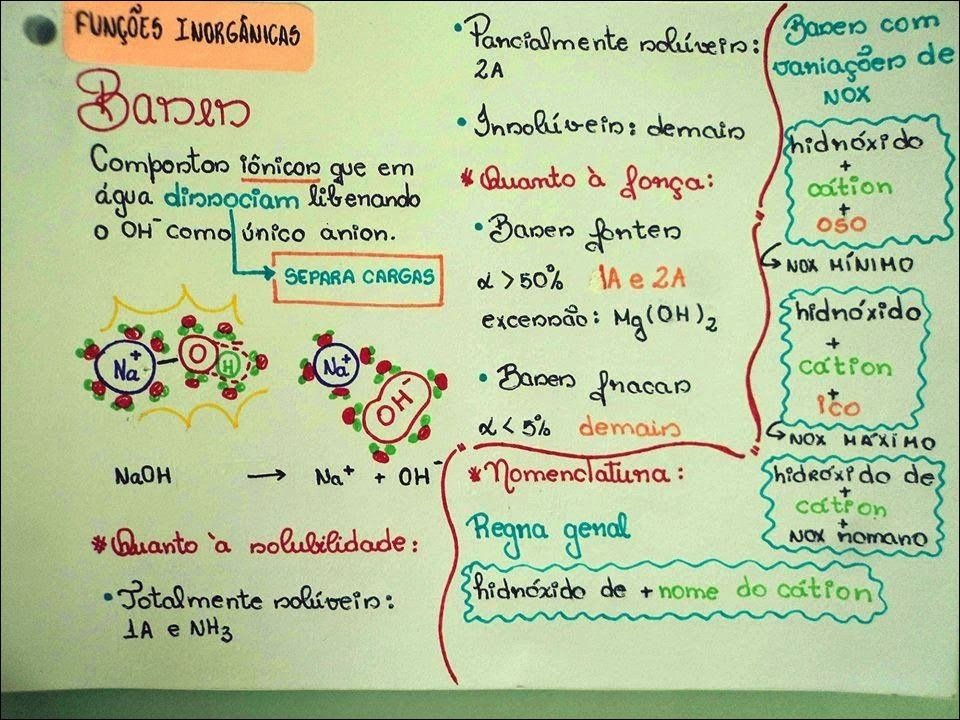 FUNÇÕES INORGÂNICAS
Bases
Compostos iônicos que em
água dissociam liberando
o OH⁻ como único ânion.
SEPARA CARGAS
Na⁺ O H
Na⁺ OH⁻
NaOH → Na⁺ + OH⁻
*Quanto à solubilidade:
• Totalmente solúveis:
1A e NH₃
• Parcialmente solúveis:
2A
• Insolúveis: demais
*Quanto à força:
• Bases fortes
α > 50% 1A e 2A
excessão: Mg(OH)₂
• Bases fracas
α < 5% demais
*Nomenclatura:
Regra geral
hidróxido de + nome do cátion
Bases com
variações de
NOX
hidróxido
+
cátion
+
OSO
NOX MÍNIMO
hidróxido
+
cátion
+
ICO
NOX MÁXIMO
hidróxido de
+
cátion
+
NOX romano